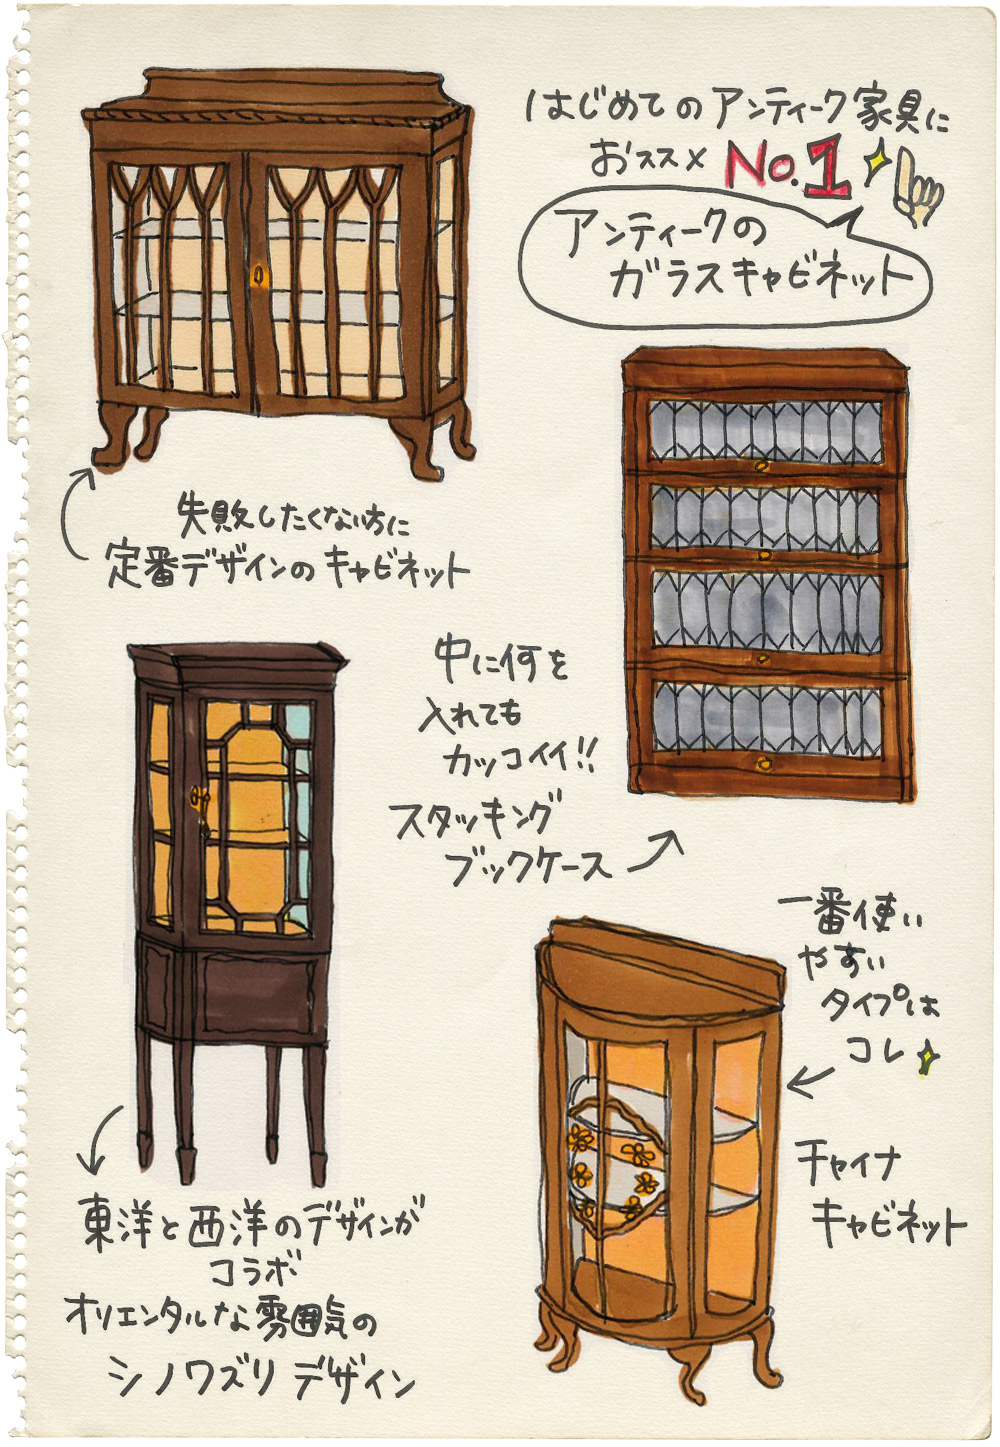 はじめてのアンティーク家具に
おススメ No.1
アンティークの
ガラスキャビネット
失敗したくない方に
定番デザインのキャビネット
中に何を
入れても
カッコイイ!!
スタッキング
ブックケース
一番使い
やすい
タイプは
コレ
チャイナ
キャビネット
東洋と西洋のデザインが
コラボ
オリエンタルな雰囲気の
シノワズリデザイン